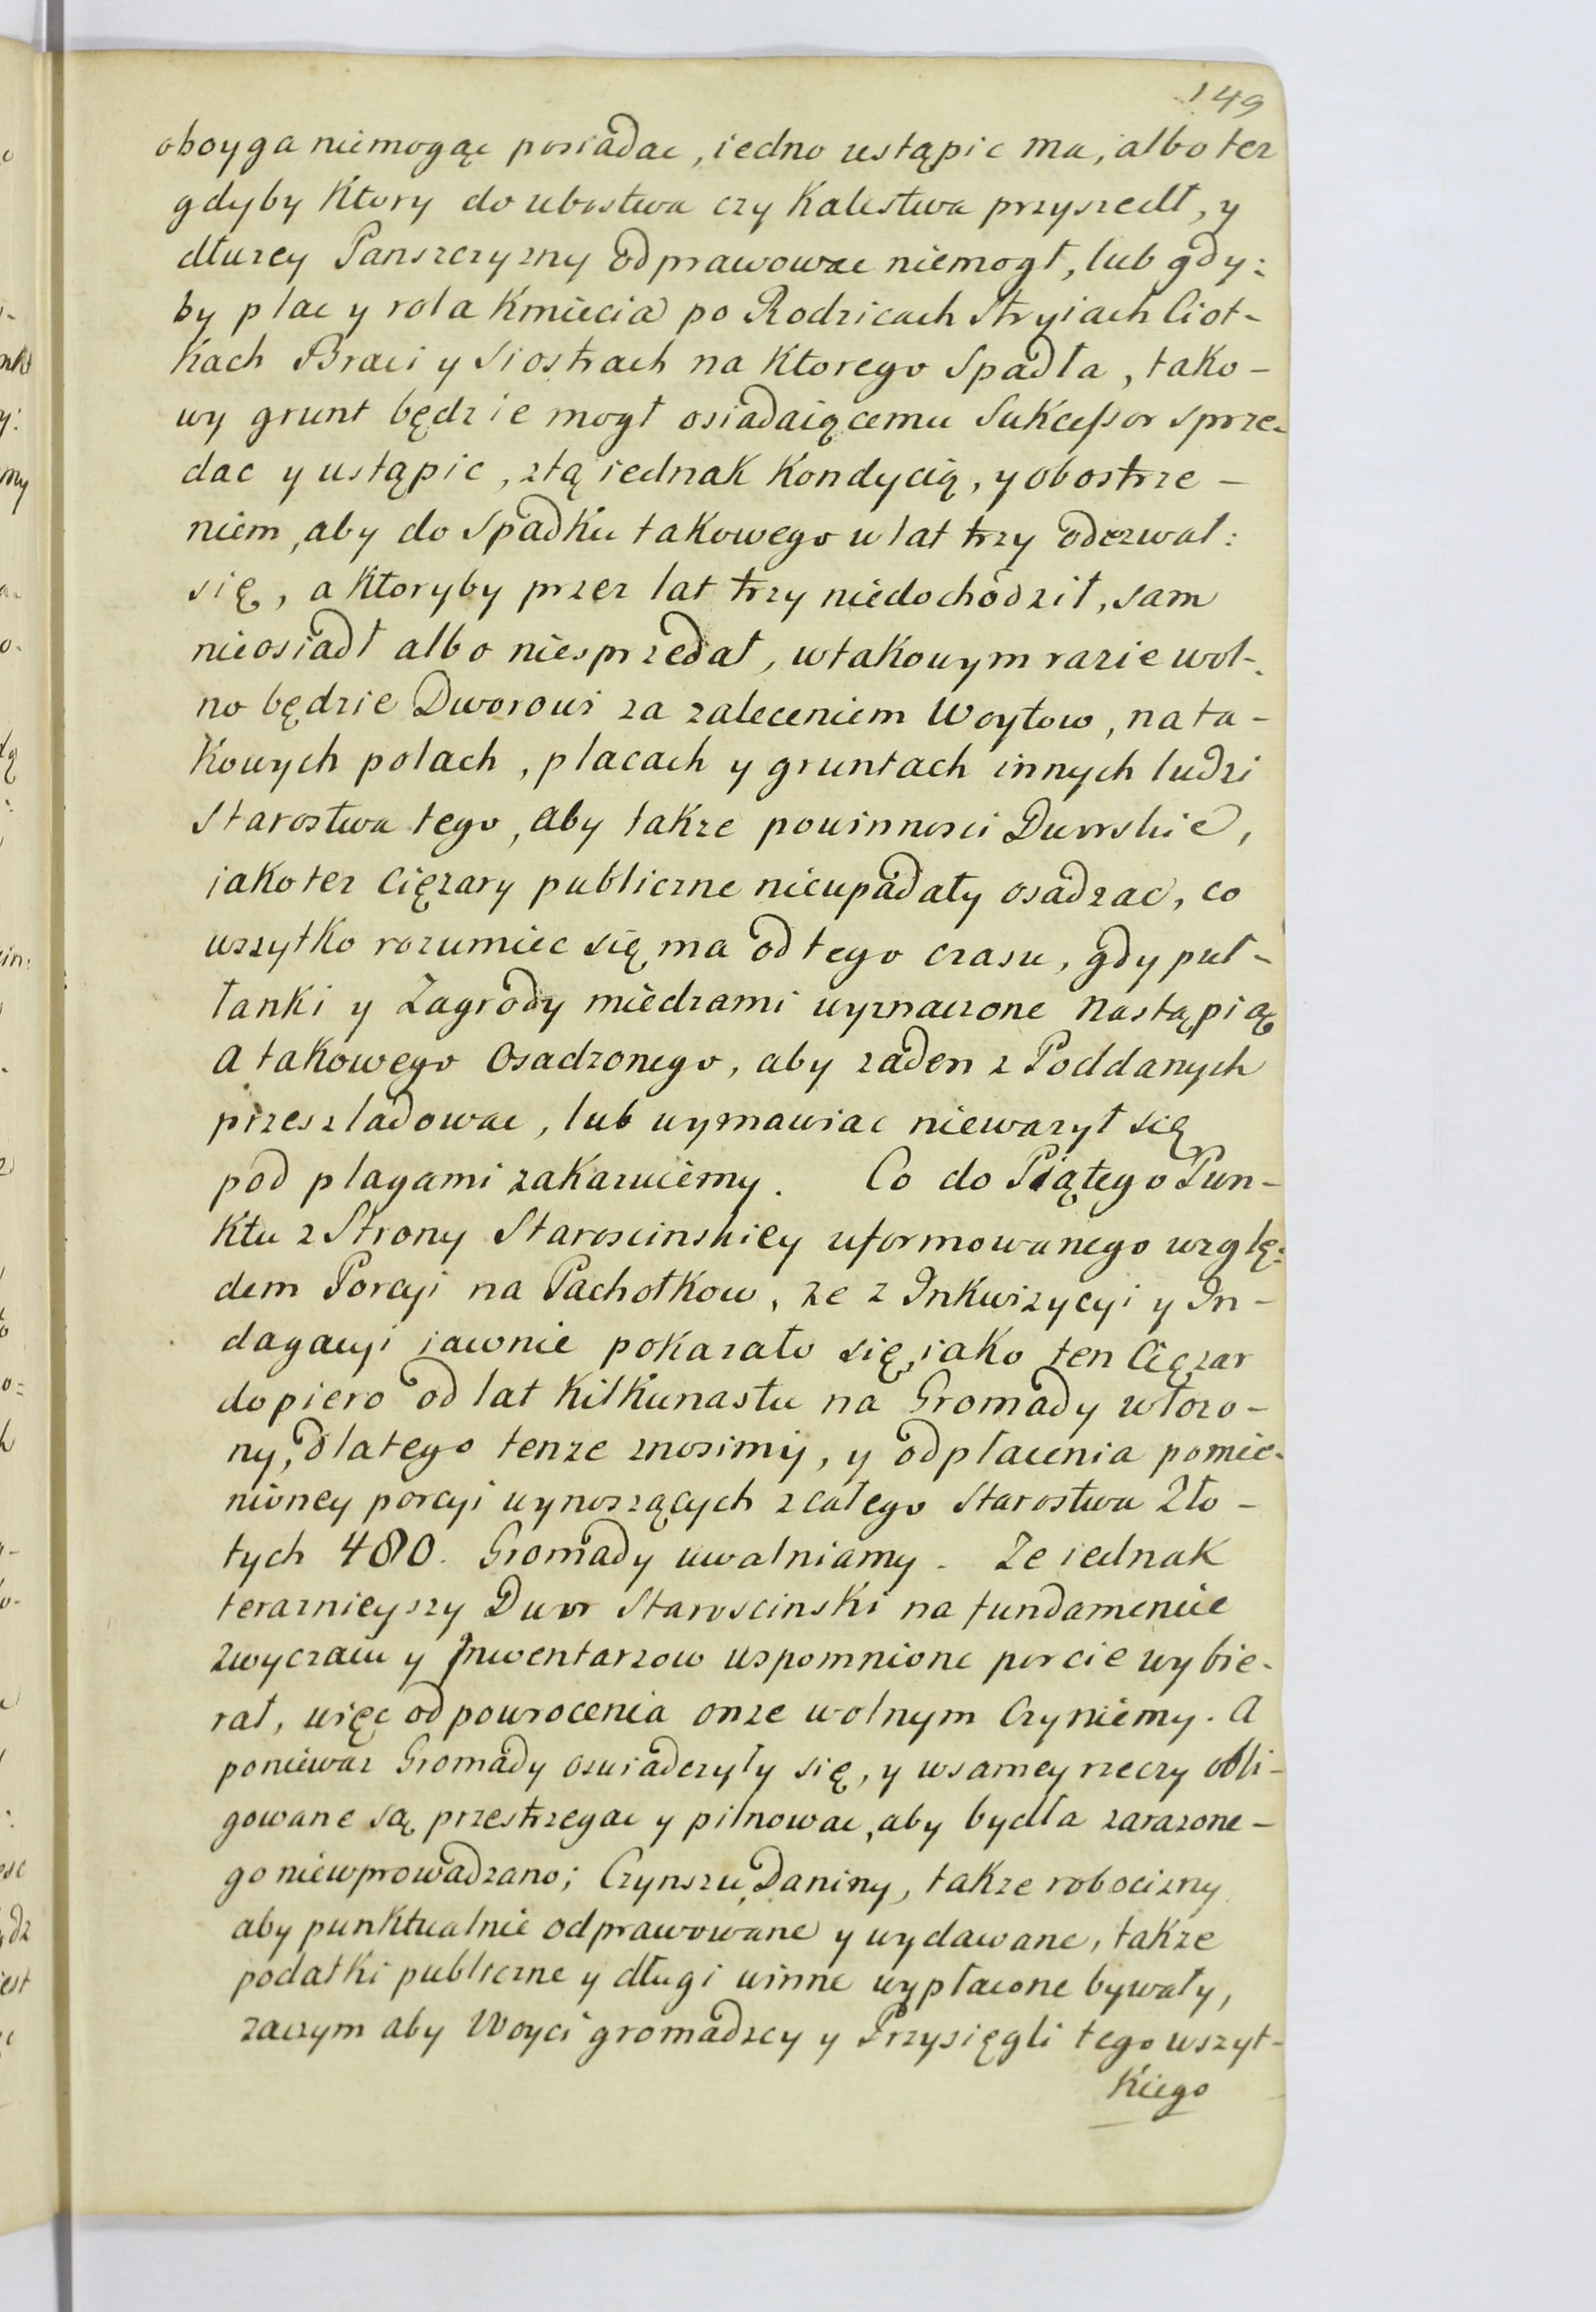 149
oboyga niemogąc posiadac, iedno ustąpic ma, albo tez
gdyby Ktory do ubostwa czy Kalestwa przyszedł, y
dłuzey Panszczyzny odprawowac niemogł, lub gdy:
by plac y rola Kmiecia po Rodzicach Stryiach Ciot-
kach Braci y Siostrach na Ktorego Spadła, tako-
wy grunt będzie mogł osiadaiącemu Sukcessor sprze-
dac y ustąpic, ztą iednak Kondycią, y obostrze-
niem, aby do Spadku takowego w lat trzy odezwał:
się, a Ktoryby przez lat trzy niedochodził, sam
nieosiadł albo niesprzedał, wtakowym razie wol-
no będzie Dworowi za zaleceniem Woytow, na ta-
Kowych polach, placach y gruntach innych ludzi
Starostwa tego, aby takze powinnosci Dworskie,
iako tez Cięzary publiczne nieupadały osadzac, co
wszytko rozumiec się ma od tego czasu, gdy puł-
łanki y Zagrody miedzami wyznaczone nastąpią
a takowego Osadzonego, aby zaden z Poddanych
przeszladowac, lub wymawiac niewazył się
pod plagami zakazuiemy. Co do Piątego Pun-
Ktu z Strony Staroscinskiey uformowanego wzglę:
dem Porcyi na Pachołkow, ze z Inkwizycyi y In-
dagacyi iawnie pokazało się, iako ten Ciężar
dopiero od lat Kilkunastu na Gromady włozo-
ny, dlatego tenze znosimy, y odpłacenia pomie-
nioney porcyi wynoszących zcałego Starostwa Zło-
tych 480. Gromady uwalniamy. Ze iednak
teraznieyszy Dwor Staroscinski na fundamencie
zwyczaiu y Inwentarzow wspomnione porcie wybie-
rał, więc od powrocenia onze wolnym Czyniemy. A
poniewaz Gromady oswiadczyły się, y wsamey rzeczy obli-
gowane są przestrzegac y pilnowac, aby bydła zarazone-
go niewprowadzano; Czynszu, Daniny, takze robocizny
aby punktualnie odprawowane y wydawane, takze
podatki publiczne y długi winne wypłacone bywały,
zaczym aby Woyci gromadzcy y Przysięgli tego wszyt-
Kiego